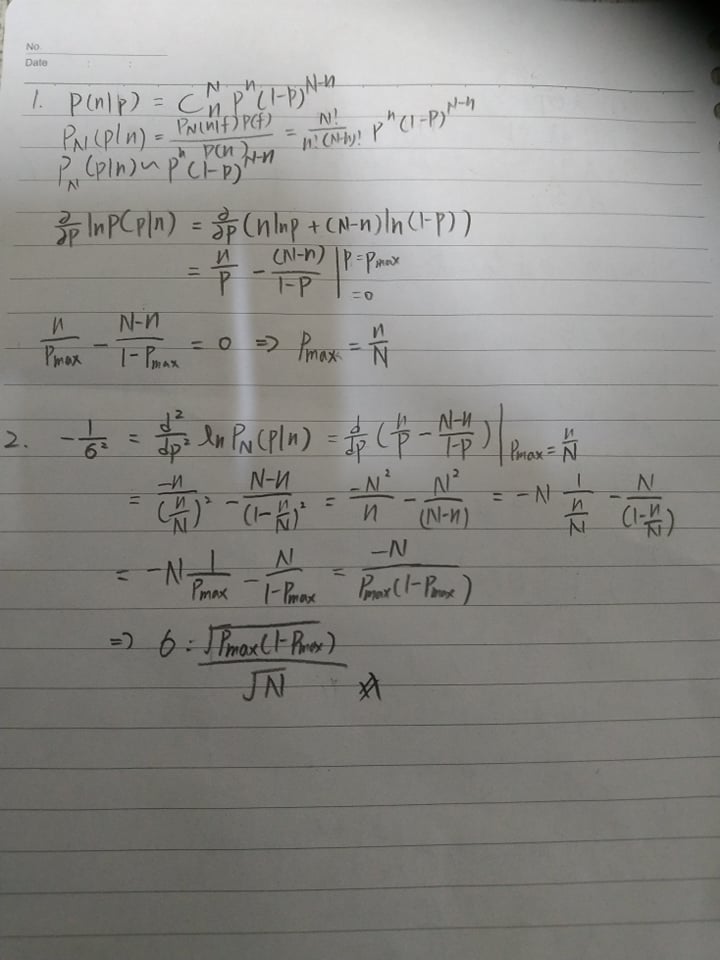 No.
Date : :
1. P(n|p) = C_n^N p^n (1-p)^{N-n}
P_N(p|n) = \frac{P_N(n|f) P(f)}{P(n)} = \frac{N!}{n!(N-n)!} p^n (1-p)^{N-n}
P_N(p|n) ∽ p^n (1-p)^{N-n}
\frac{∂}{∂p} ln P(p|n) = \frac{∂}{∂p} (n ln p + (N-n) ln (1-p))
= \frac{n}{p} - \frac{(N-n)}{1-p} |_{p=p_{max}} =0
\frac{n}{P_{max}} - \frac{N-n}{1-P_{max}} = 0 ⇒ P_{max} = \frac{n}{N}
2. -\frac{1}{6^2} = \frac{d^2}{dp^2} ln P_N(p|n) = \frac{d}{dp} (\frac{n}{p} - \frac{N-n}{1-p}) |_{P_{max} = \frac{n}{N}}
= \frac{-n}{(\frac{n}{N})^2} - \frac{N-n}{(1-\frac{n}{N})^2} = \frac{-N^2}{n} - \frac{N^2}{(N-n)} = -N \frac{1}{\frac{n}{N}} - \frac{N}{(1-\frac{n}{N})}
= -N \frac{1}{P_{max}} - \frac{N}{1-P_{max}} = \frac{-N}{P_{max}(1-P_{max})}
⇒ 6 = \frac{\sqrt{P_{max}(1-P_{max})}}{\sqrt{N}}